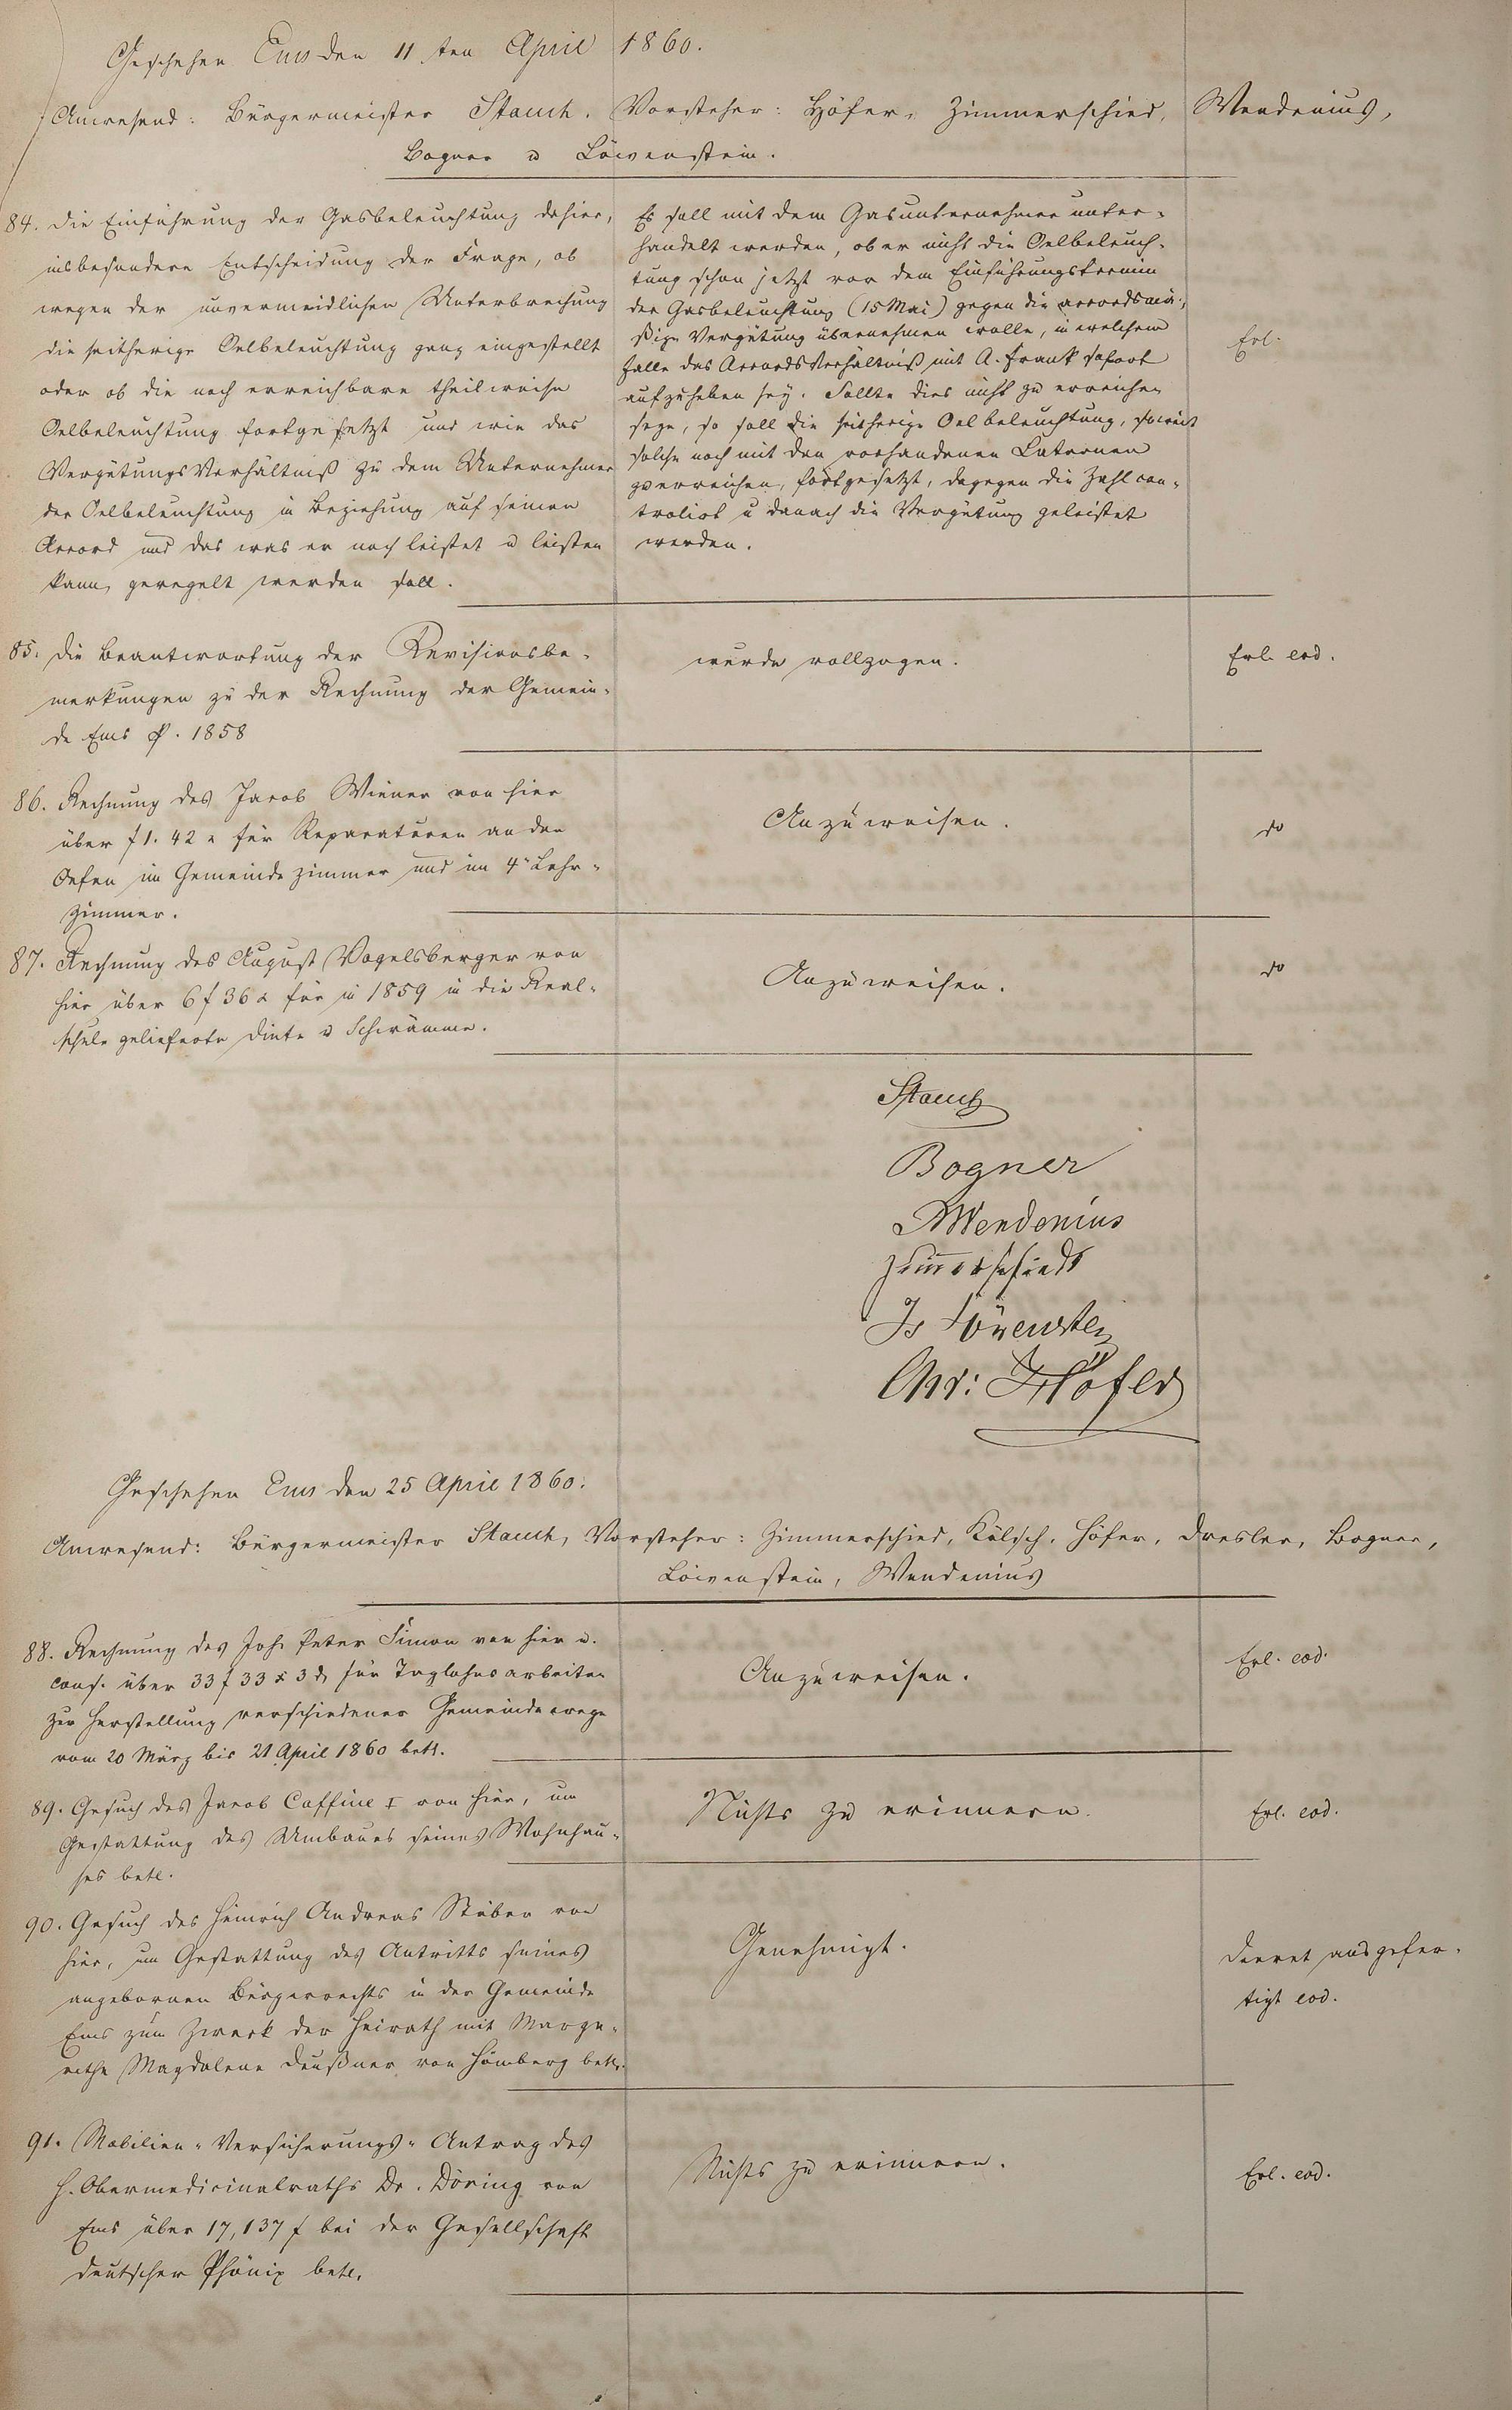 Geschehen Ems den 11ten April 1860.
Anwesend: Bürgermeister Stauch. Vorsteher: Höfer, Zimmerschied, Wendenius,
Bogner u Löwenstein.
84. Die Einführung der Gasbeleuchtung dahier,
insbesondere Entscheidung der Frage, ob
wegen der unvermeidlichen Unterbrechung
die seitherige Oelbeleuchtung ganz eingestellt
oder ob die noch erreichbare theilweise
Oelbeleuchtung fortgesetzt und wie das
Vergütungs Verhältniß zu dem Unternehmer
der Oelbeleuchtung in Beziehung auf seinen
Accord und das was er noch leistet u leisten
kann, geregelt werden soll.
Es soll mit dem Gasunternehmer unter-
handelt werden, ob er nicht die Oelbeleuch-
tung schon jetzt vor dem Einführungstermin
der Gasbeleuchtung (15 Mai) gegen die accordsmä-
ßige Vergütung übernehmen wolle, in welchem
Falle das Accords Verhältniß mit A. Frank sofort
aufzuheben sey. Sollte dies nicht zu erreichen
seyn, so soll die seitherige Oelbeleuchtung, soweit
solche noch mit den vorhandenen Laternen
zu erreichen, fortgesetzt, dagegen die Zahl con-
trolirt u danach die Vergütung geleistet
werden.
Erl.
85. Die Beantwortung der Revisionsbe-
merkungen zu der Rechnung der Gemein-
de Ems p. 1858
wurde vollzogen.
Erl. eod.
86. Rechnung des Jacob Wiener von hier
über f 1. 42 x für Reparaturen an den
Oefen im Gemeindezimmer und im 4n Lehr-
zimmer.
Anzuweisen.
do
87. Rechnung des August Vogelsberger von
hier über 6 f 36 x für in 1859 in die Real-
schule gelieferte Dinte u Schwämme.
Anzuweisen.
do
Stauch
Bogner
Wendenius
Zimerschied
Is Löwenstein
Chr: Höfer
Geschehen Ems den 25 April 1860.
Anwesend: Bürgermeister Stauch, Vorsteher: Zimmerschied, Kölsch, Höfer, Dresler, Bogner,
Löwenstein, Wendenius
88. Rechnung des Joh. Peter Simon von hier u.
Cons. über 33 f 33 x 3 d für Taglohnsarbeiten
zur Herstellung verschiedener Gemeindewege
vom 20 März bis 21 April 1860 betr.
Anzuweisen.
Erl. eod.
89. Gesuch des Jacob Caffine I von hier, um
Gestattung des Umbaues seines Wohnhau-
ses betr.
Nichts zu erinnern.
Erl. eod.
90. Gesuch des Heinrich Andreas Stüber von
hier, um Gestattung des Antritts seines
angebornen Bürgerrechts in der Gemeinde
Ems zum Zweck der Heirath mit Marga-
rethe Magdalene Deußner von Hömberg betr.
Genehmigt.
Decret ausgefer-
tigt eod.
91. Mobilien-Versicherungs-Antrag des
H. Obermedicinalraths Dr. Döring von
Ems über 17,137 f bei der Gesellschaft
deutscher Phönix betr.
Nichts zu erinnern.
Erl. eod.